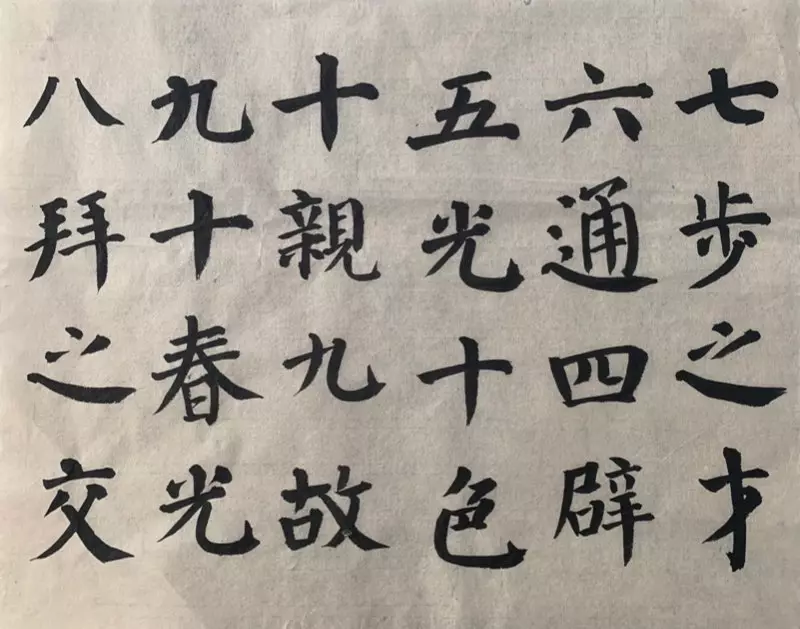 七步之才
六通四辟
五光十色
十親九故
九十春光
八拜之交